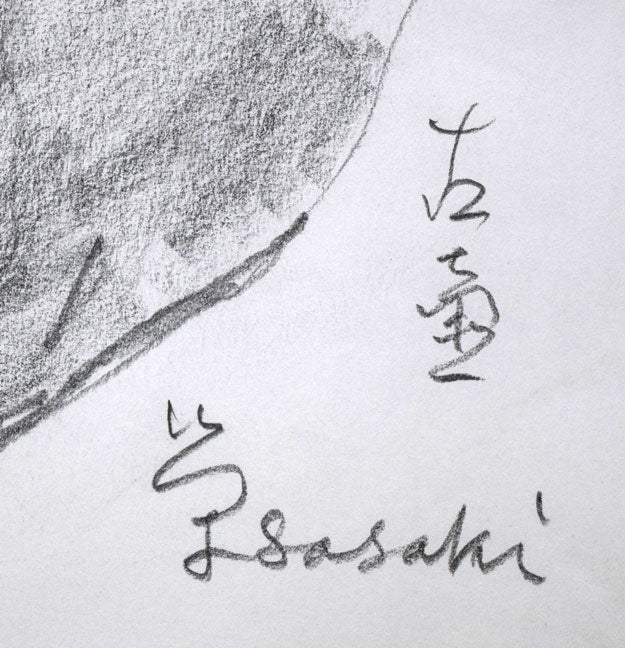 古壺
学 sasaki